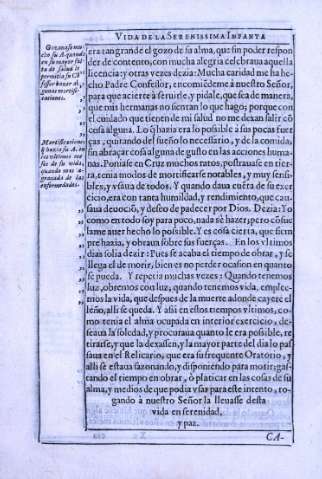 VIDA DE LA SERENISSIMA INFANTA
Gozauase mu-
cho su A. quando
en su mayor fal-
ta de salud le
permitia su Cō
fessor hazer al-
gunas mortifi-
caciones.
Mortificaciones
q̃ hazia su A. en
los vltimos me-
ses de su vida,
quando mas a-
grauada de las
enfermedades.
era tan grande el gozo de su alma, que sin poder respon
der de contento, con mucha alegria celebraua aquella
licencia: y otras vezes dezia: Mucha caridad me ha he
cho Padre Confessor, encomiẽdeme à nuestro Señor,
para que acierte à seruirle, y pidale, que sea de manera,
que mis hermanas no sientan lo que hago; porque con
el cuidado que tienen de mi salud no me dexan salir cō
cosa alguna. Lo q̃ hazia era lo possible à sus pocas fuer
ças, quitando del sueño lo necessario, y de la comida,
sin abraçar cosa alguna de gusto en las acciones huma-
nas. Poniase en Cruz muchos ratos, postrauase en tier-
ra, tenia modos de mortificarse notables, y muy sensi-
bles, y vsaua de todos. Y quando daua cuẽta de su exer
cicio, era con tanta humildad, y rendimiento, que cau
saua deuoció, y deseo de padecer por Dios. Dezia: Yo
como en todo soy para poco, nada sè hazer; pero cōsue
lame auer hecho lo possible. Y es cosa cierta, que siem
pre hazia, y obraua sobre sus fuerças. En los vltimos
dias solia dezir: Pues se acaba el tiempo de obrar, y se
llega el de morir, bien es no perder ocasion en quanto
se pueda. Y repetia muchas vezes: Quando tenemos
luz, obremos con luz, quando tenemos vida, emplee-
mos la vida, que despues de la muerte adonde cayere el
leño, alli se queda. Y assi en estos tiempos vltimos, co-
mo tenia el alma ocupada en interior exercicio, de-
seaua la soledad, y procuraua quanto le era possible, re
tirarse, y que la dexassen, y la mayor parte del dia lo pas
saua en el Relicario, que era su frequente Oratorio, y
alli se estaua sazonando, y disponiendo para morir; gas-
tando el tiempo en obrar, ò platicar en las cosas de su
alma, y medios de que podia vsar para este intento, ro-
gando à nuestro Señor la lleuasse desta
vida en serenidad,
y paz.
CA-